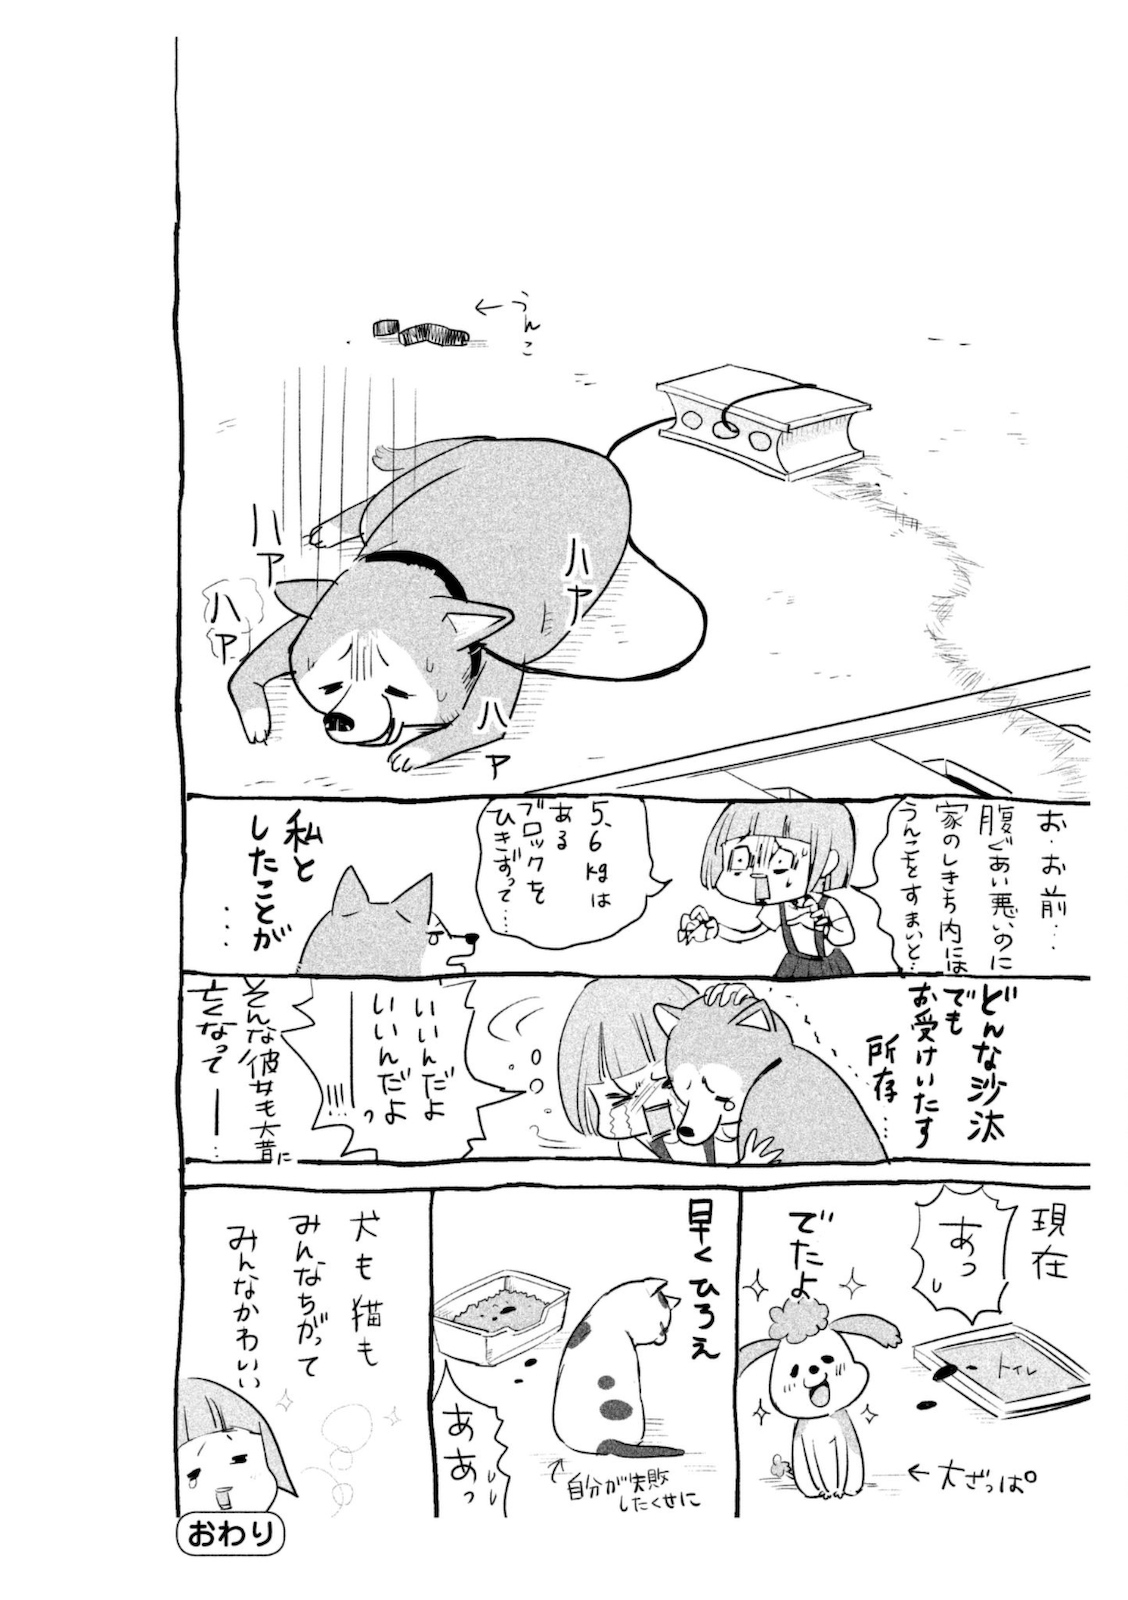 うんこ
ハァ
ハァ
ハァ
ハァ
お・お前…
腹ぐあい悪いのに
家のしきち内には
うんこをすまいと…
5、6kgは
ある
ブロックを
ひきずって…
私と
したことが
…
どんな沙汰
でも
お受けいたす
所存…
いいんだよ
いいんだよっ
――!!!
そんな彼女も大昔に
亡くなって――…
現在
あっ
トイレ
でたよ
←大ざっぱ。
早くひろえ
ああっ
自分が失敗
したくせに
犬も猫も
みんなちがって
みんなかわいい
おわり